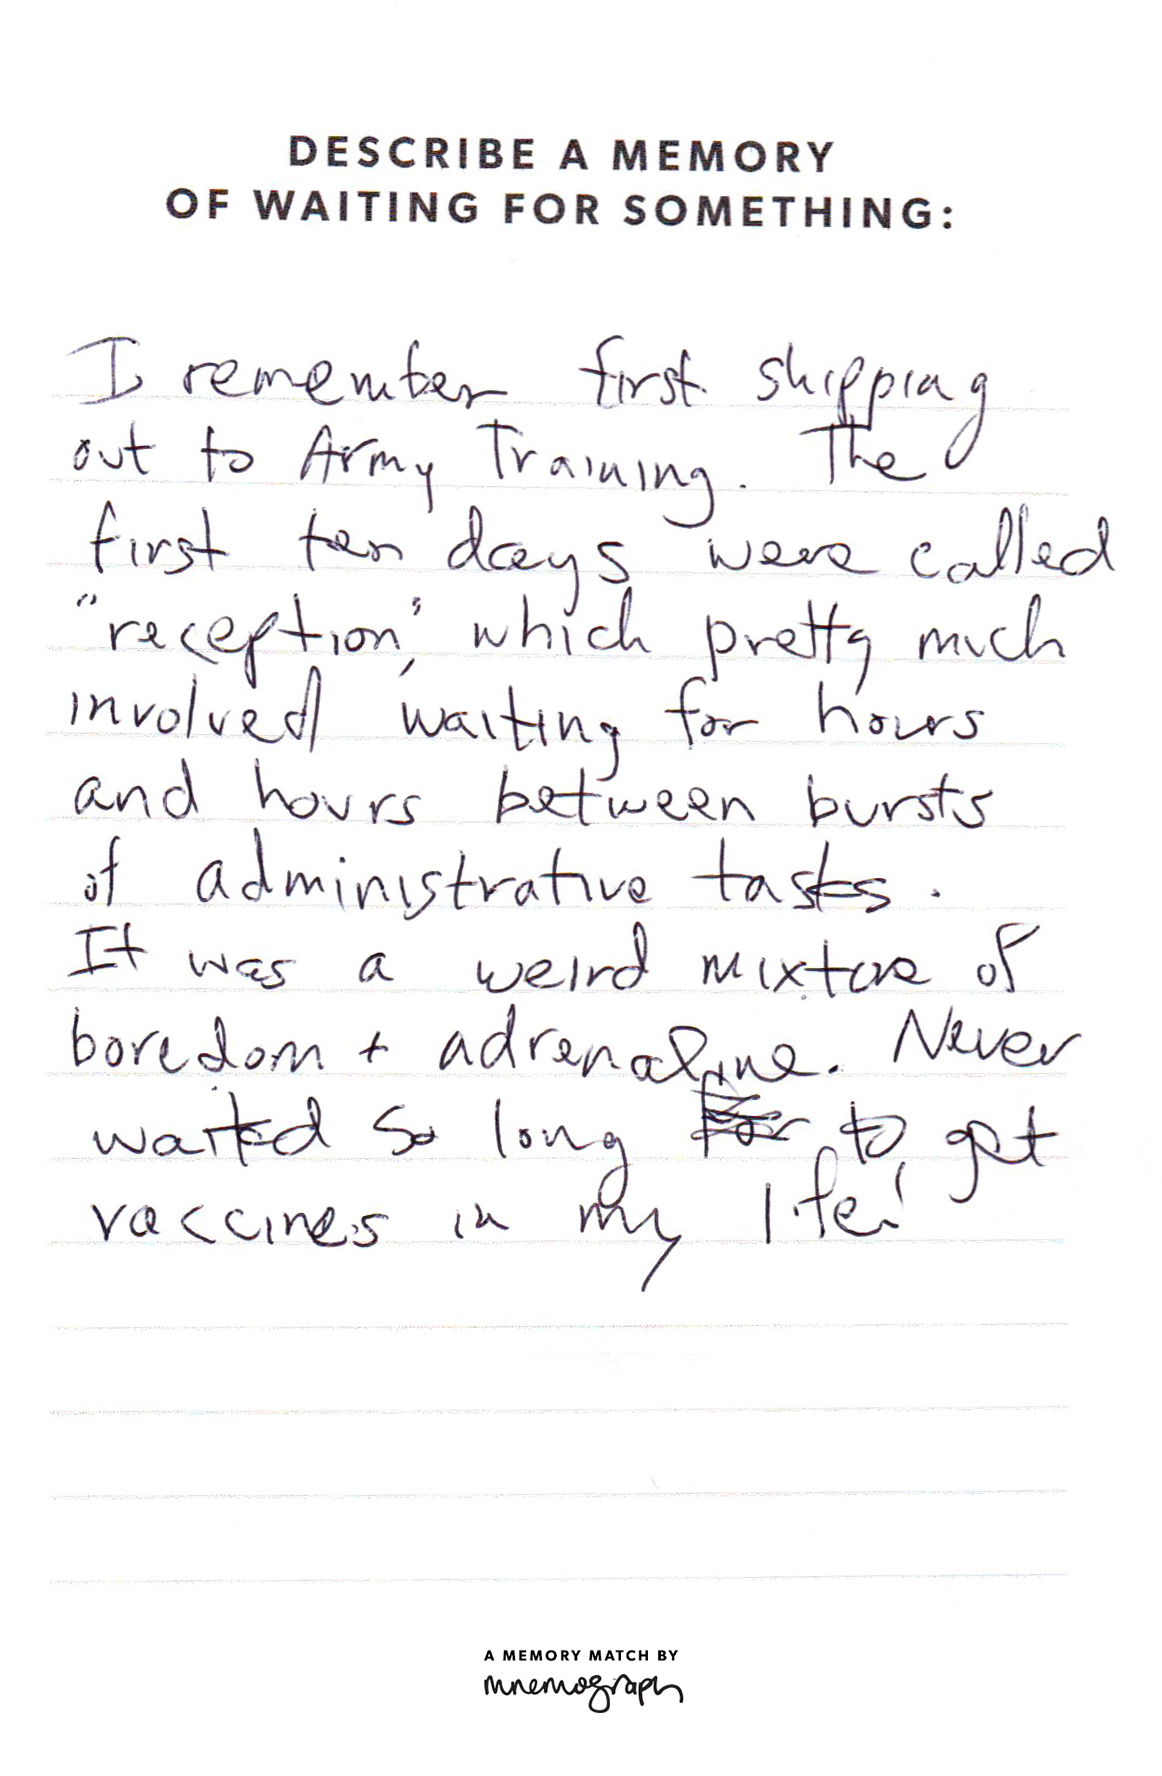 DESCRIBE A MEMORY
OF WAITING FOR SOMETHING:
I remember first shipping
out to Army Training. The
first ten days were called
"reception," which pretty much
involved waiting for hours
and hours between bursts
of administrative tasks.
It was a weird mixture of
boredom + adrenaline. Never
waited so long for to get
vaccines in my life!
A MEMORY MATCH BY
mnemograph